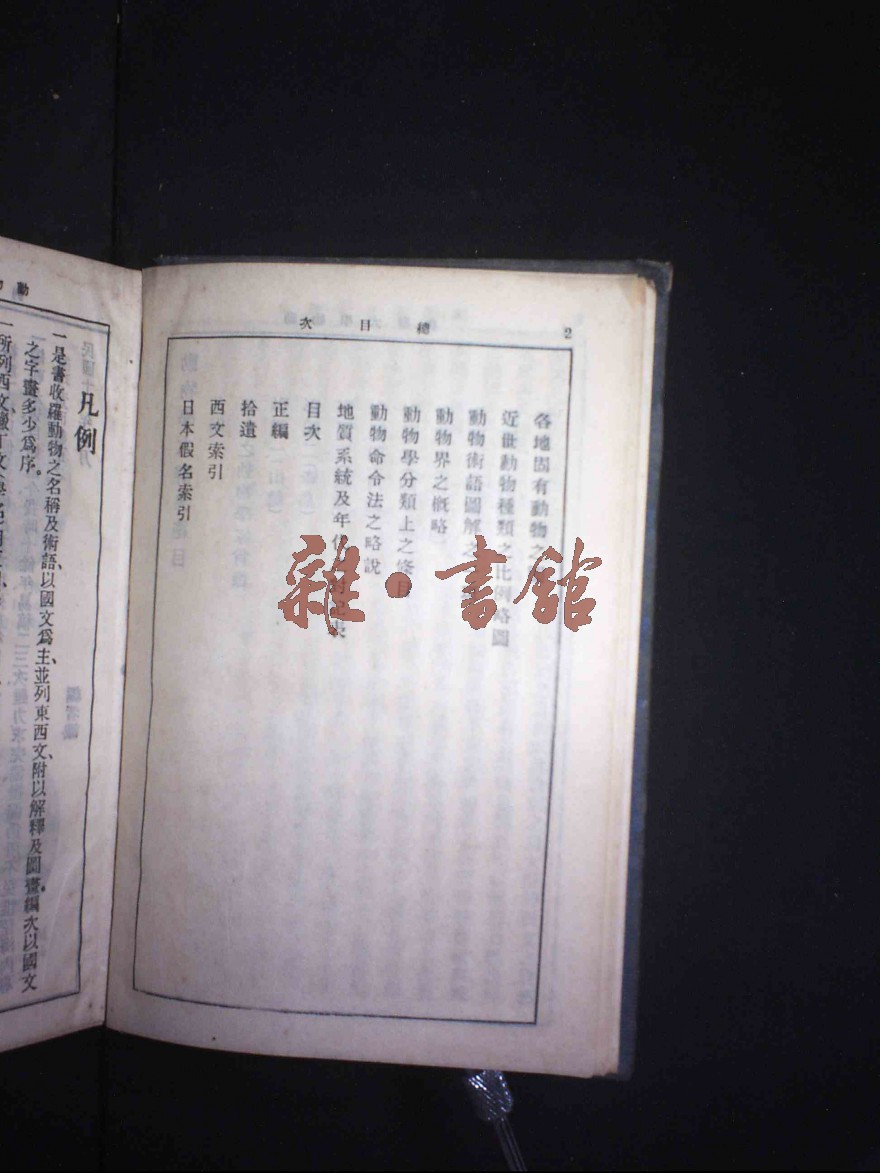 2
總目次
各地固有動物之
近世動物種類之比例略圖
動物術語圖解之
動物界之概略
動物學分類上之條目
動物命令法之略說
地質系統及年代對照表
目次
正編
拾遺
西文索引
日本假名索引
雜·書館
動
凡例
一是書收羅動物之名稱及術語、以國文爲主、並列東西文、附以解釋及圖畫、編次以國文
之字畫多少爲序。
一所列西文